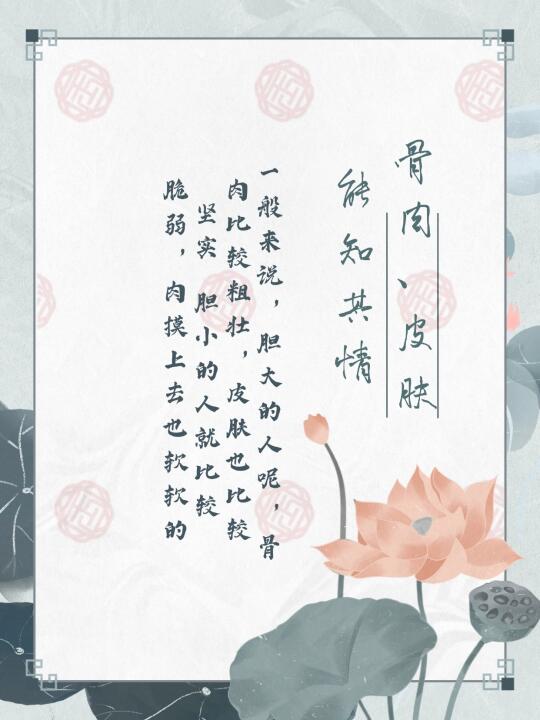 骨肉、皮肤
能知其情
一般来说，胆大的人呢，骨
肉比较粗壮，皮肤也比较
坚实 胆小的人就比较
脆弱，肉摸上去也软软的